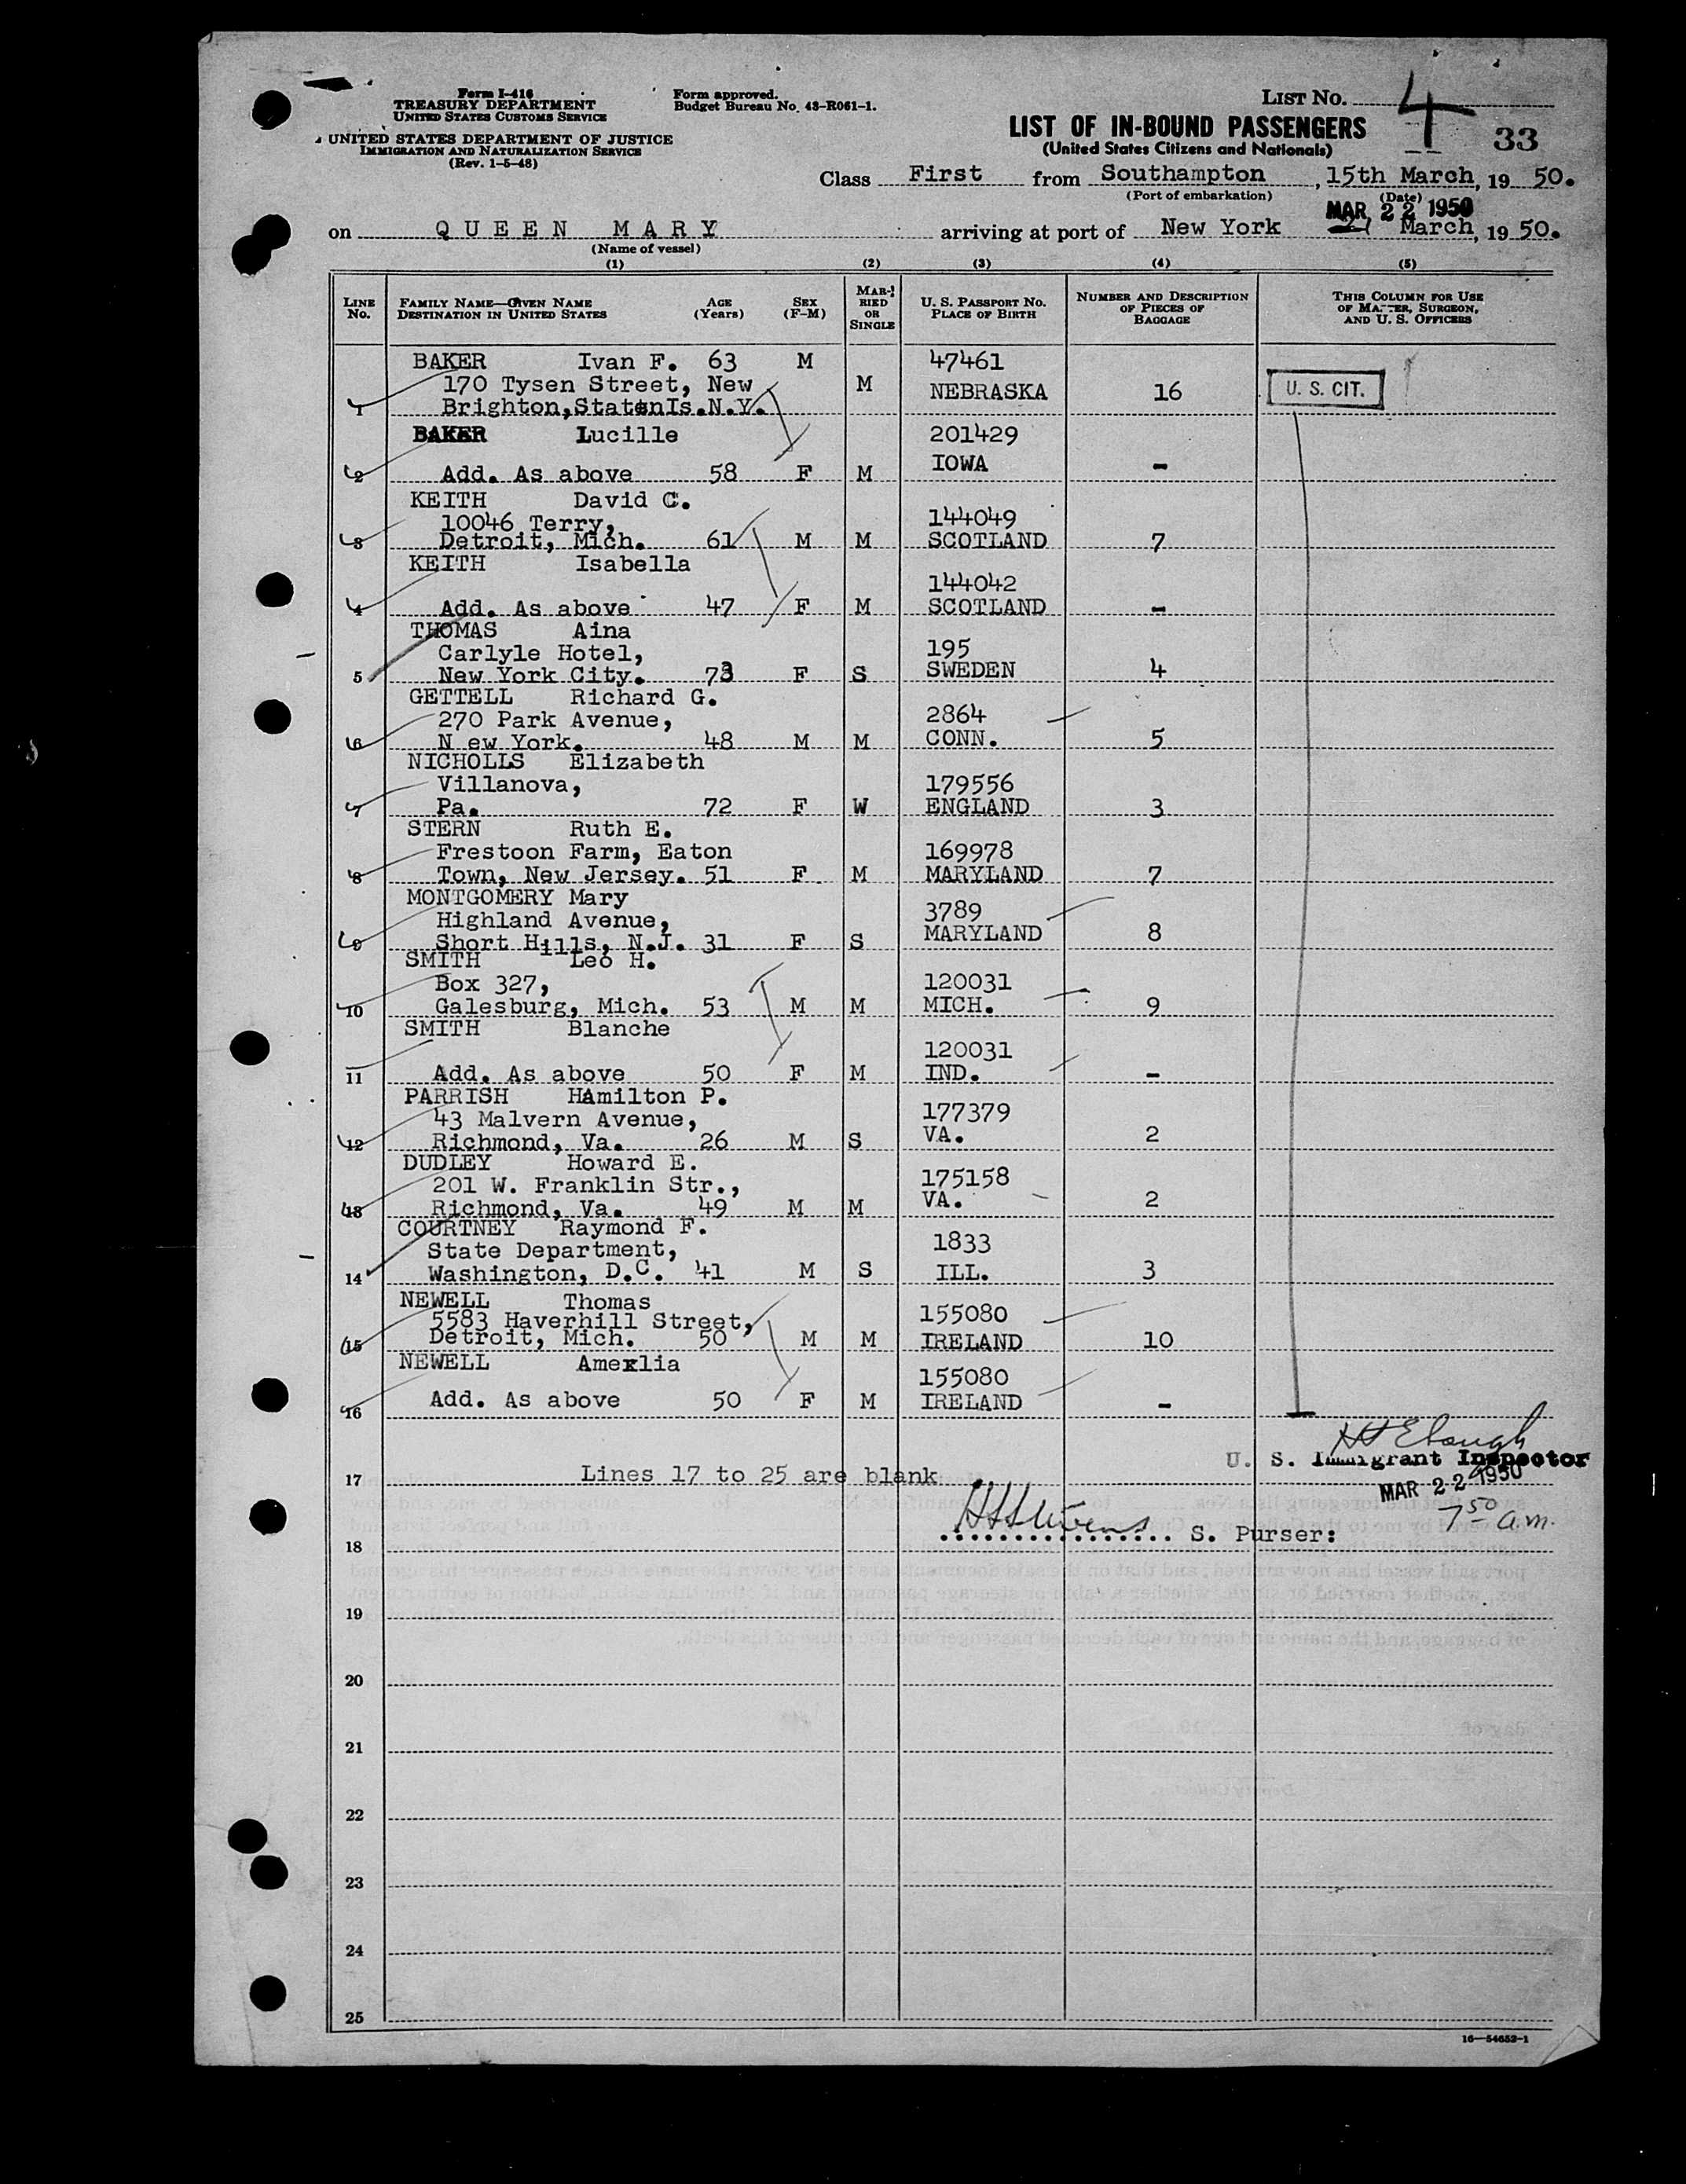 Form I-416
TREASURY DEPARTMENT
UNITED STATES CUSTOMS SERVICE
UNITED STATES DEPARTMENT OF JUSTICE
IMMIGRATION AND NATURALIZATION SERVICE
(Rev. 1-5-48)
Form approved.
Budget Bureau No. 43-R061-1.
LIST No. 4
LIST OF IN-BOUND PASSENGERS 33
(United States Citizens and Nationals)
Class First from Southampton, 15th March, 19 50.
(Port of embarkation) (Date)
MAR 22 1950
on QUEEN MARY arriving at port of New York March, 19 50.
(Name of vessel)
(1) (2) (3) (4) (5)
LINE No. FAMILY NAME—GIVEN NAME DESTINATION IN UNITED STATES AGE (Years) SEX (F-M) MARRIED OR SINGLE U. S. PASSPORT No. PLACE OF BIRTH NUMBER AND DESCRIPTION OF PIECES OF BAGGAGE THIS COLUMN FOR USE OF MASTER, SURGEON, AND U. S. OFFICERS
BAKER Ivan F. 63 M 47461
170 Tysen Street, New M NEBRASKA 16 U. S. CIT.
1 Brighton,StatenIs.N.Y.
BAKER Lucille 201429
2 Add. As above 58 F M IOWA -
KEITH David C.
10046 Terry, 144049
3 Detroit, Mich. 61 M M SCOTLAND 7
KEITH Isabella 144042
4 Add. As above 47 F M SCOTLAND -
THOMAS Aina
Carlyle Hotel, 195
5 New York City. 73 F S SWEDEN 4
GETTELL Richard G.
270 Park Avenue, 2864
6 N ew York. 48 M M CONN. 5
NICHOLLS Elizabeth
Villanova, 179556
7 Pa. 72 F W ENGLAND 3
STERN Ruth E.
Frestoon Farm, Eaton 169978
8 Town, New Jersey. 51 F M MARYLAND 7
MONTGOMERY Mary
Highland Avenue, 3789
9 Short Hills, N.J. 31 F S MARYLAND 8
SMITH Leo H.
Box 327, 120031
10 Galesburg, Mich. 53 M M MICH. 9
SMITH Blanche 120031
11 Add. As above 50 F M IND. -
PARRISH Hamilton P.
43 Malvern Avenue, 177379
12 Richmond, Va. 26 M S VA. 2
DUDLEY Howard E.
201 W. Franklin Str., 175158
13 Richmond, Va. 49 M M VA. 2
COURTNEY Raymond F.
State Department, 1833
14 Washington, D.C. 41 M S ILL. 3
NEWELL Thomas
5583 Haverhill Street, 155080
15 Detroit, Mich. 50 M M IRELAND 10
NEWELL Amexlia 155080
16 Add. As above 50 F M IRELAND -
U. S. Immigrant Inspector
17 Lines 17 to 25 are blank
MAR 22 1950
7 50 a.m.
S. Purser:
18
19
20
21
22
23
24
25
16—54652-1